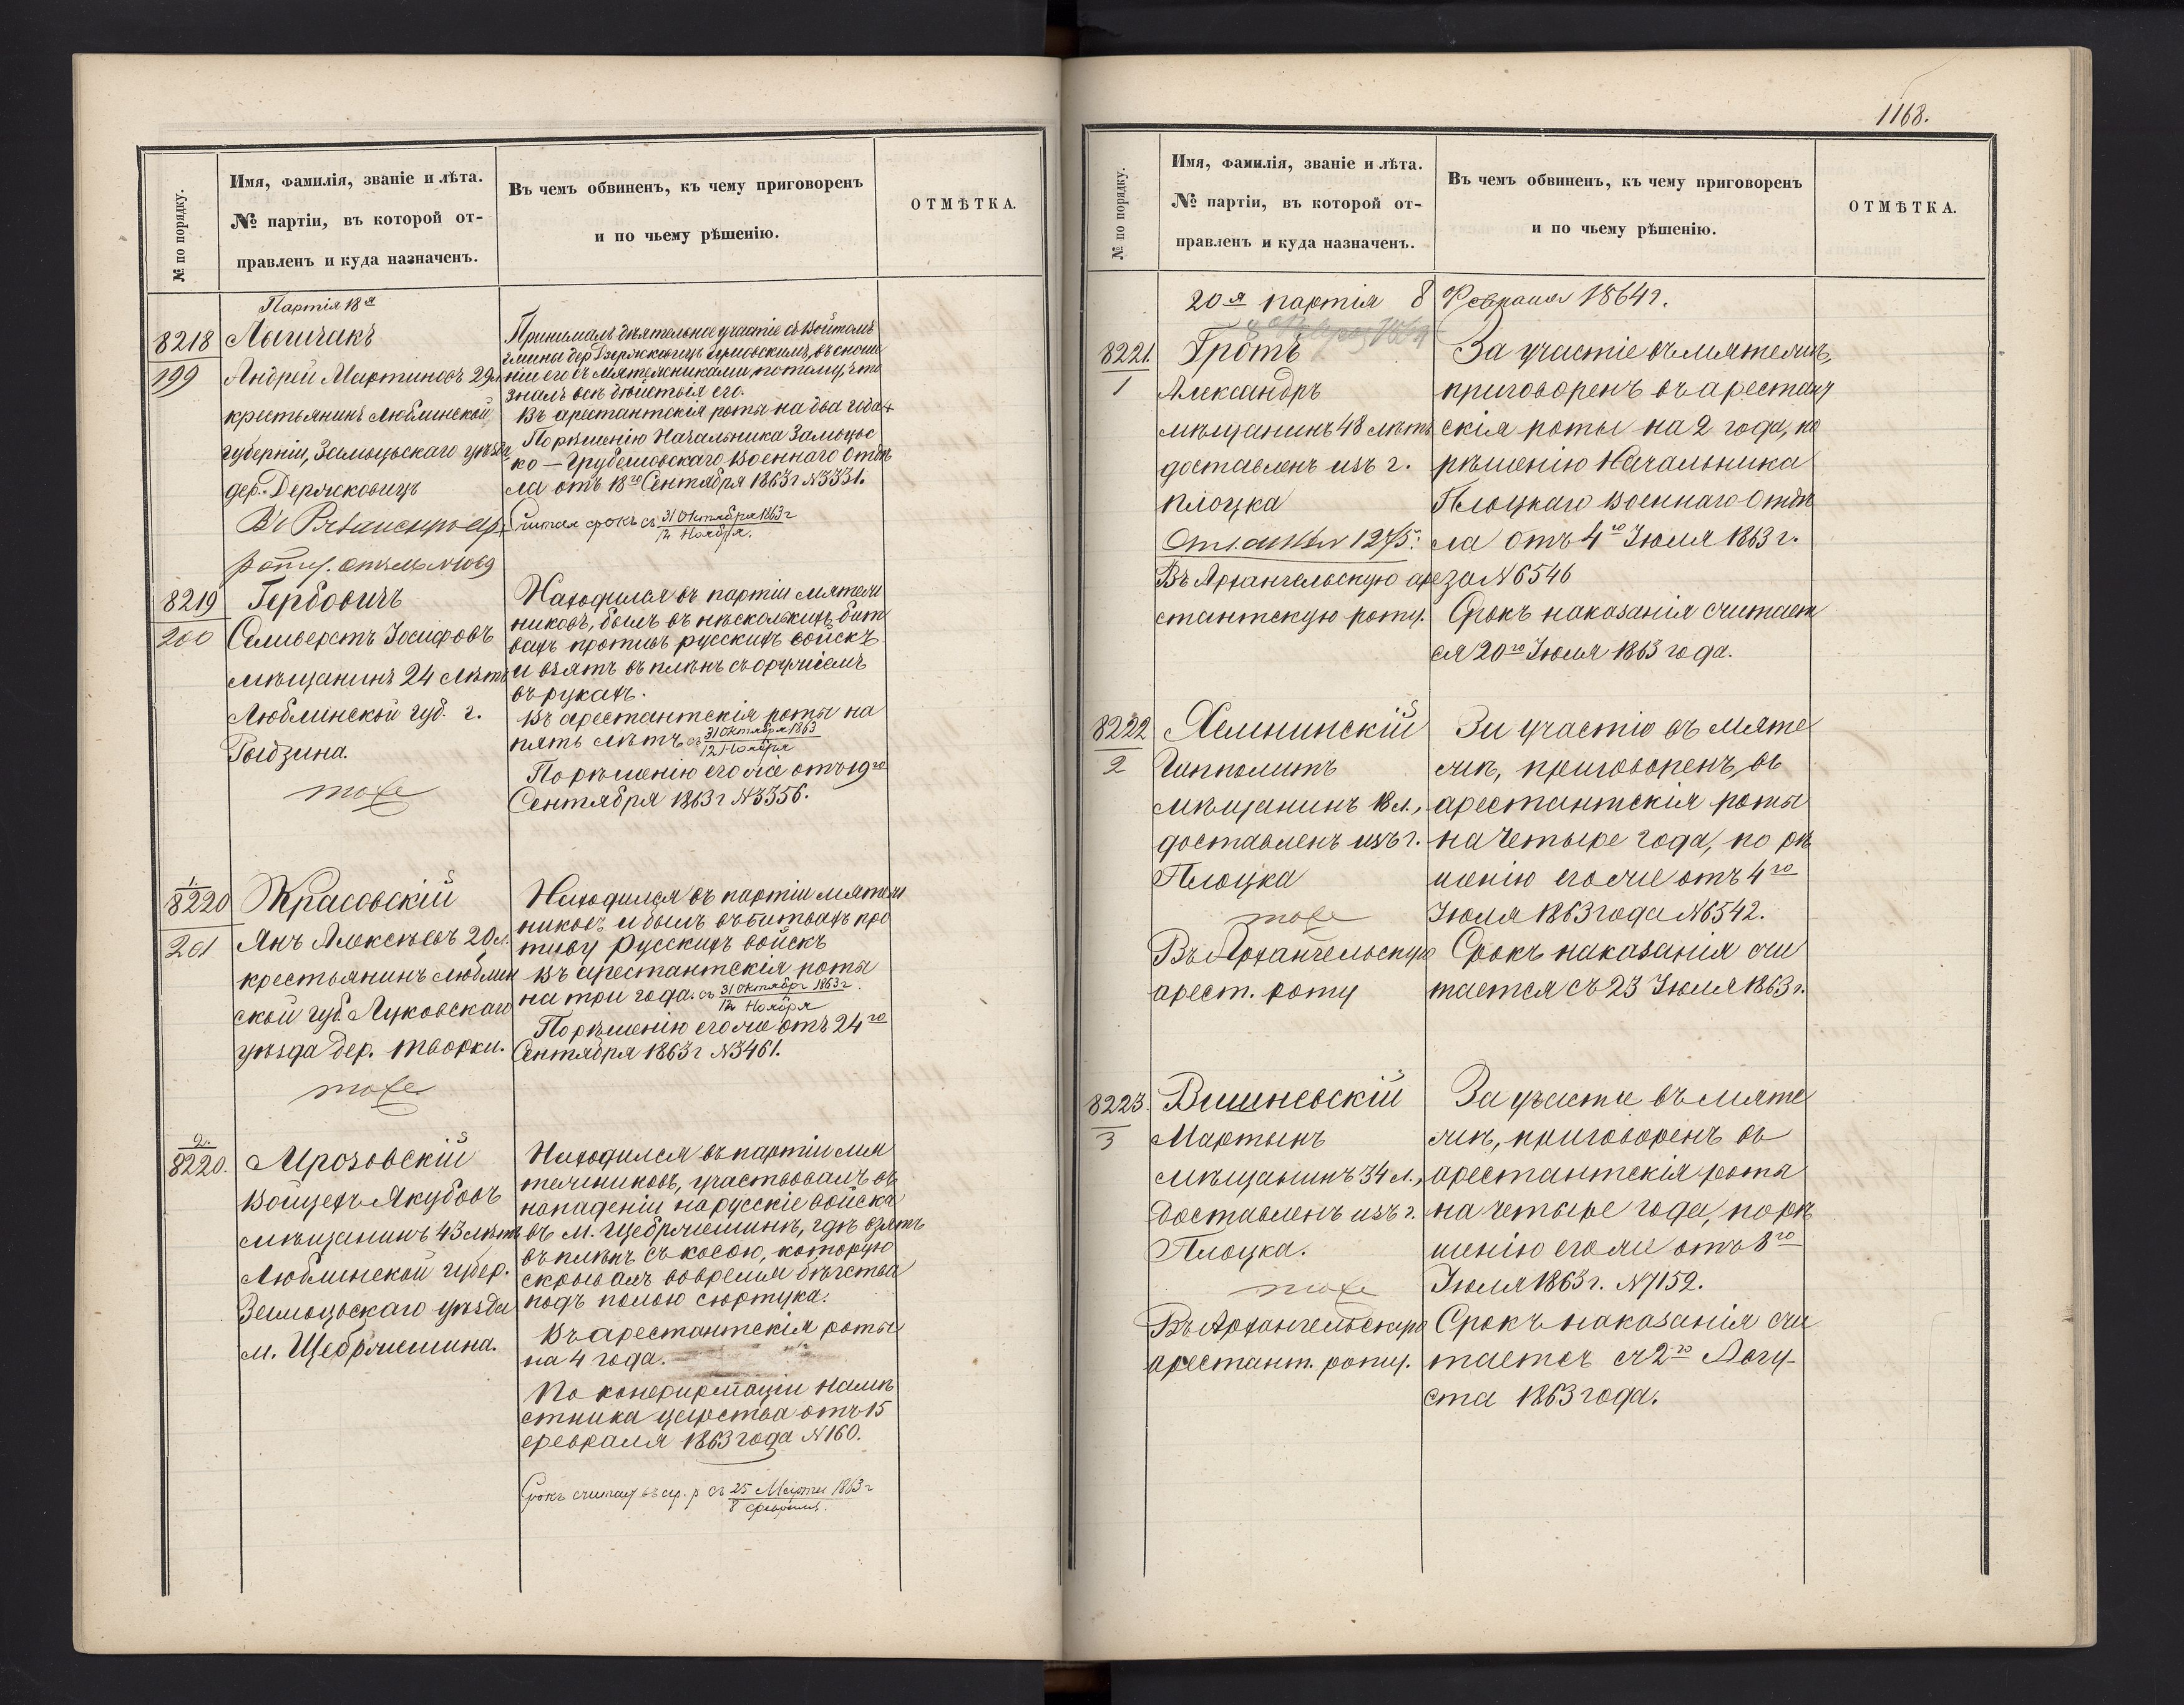 1168.
№ по порядку.
Имя, фамилія, званіе и лѣта.
№ партіи, въ которой от-
правленъ и куда назначенъ.
Въ чемъ обвиненъ, къ чему приговоренъ
и по чьему рѣшенію.
ОТМѢТКА.
Партія 18я
8218
199
Лыщакъ
Андрей Мартиновъ 29 л.
крестьянинъ Люблинской
губерніи, Замоцьскаго уѣзда
дер.
Принималъ дѣятельное участіе съ войтомъ
гмины дер
ніи его съ мятежниками, потому что
зналъ всѣ дѣйствія его.
Въ арестантскія роты на два года
По рѣшенію Начальника Замоцьс
ко-Грубешовскаго военнаго отдѣ
ла отъ 18го Сентября 1863 г №3331.
Считая срокъ съ 31 Октября 1863 г
12 Ноября.
8219
200
Гербовичъ
Селиверстъ Іосифовъ
мѣщанинъ 24 лѣтъ
Люблинской губ. г.
тоже
Находился въ партіи мятеж
никовъ, былъ въ нѣсколькихъ бит
вахъ противъ русскихъ войскъ
и взятъ въ плѣнъ съ оружіемъ
въ рукахъ.
Въ арестантскія роты на
пять лѣтъ съ 31 Октября 1863
12 Ноября
По рѣшенію его же отъ 19го
Сентября 1863 г №3356.
1.
8220
201
Красовскій
Янъ Алексѣевъ 20 л.
крестьянинъ Люблин
ской губ. Луковскаго
уѣзда дер. Творки.
тоже
Находился въ партіи мятеж
никовъ и былъ въ битвахъ про
тиву Русскихъ войскъ
Въ арестантскія роты
на три года. съ 31 Октября 1863 г.
12 Ноября
По рѣшенію его же отъ 24го
Сентября 1863 г №3461.
2.
8220.
Мрозовскій
Войцехъ Якубовъ
мѣщанинъ 43 лѣтъ
Люблинской губер.
Замоцьскаго уѣзда
м. Щебржешина.
Находился въ партіи мя
тежниковъ, участвовалъ въ
нападеніи на русскіе войска
въ м. Щебржешинѣ, гдѣ взятъ
въ плѣнъ съ косою, которую
скрывалъ во время бѣгства
подъ полою сюртука.
Въ арестантскія роты
на 4 года.
По конфирмаціи Намѣ
стника царства отъ 15
февраля 1863 года №160.
Срокъ считать въ ар. р съ 25 Марта 1863 г
8 февраля.
№ по порядку.
Имя, фамилія, званіе и лѣта.
№ партіи, въ которой от-
правленъ и куда назначенъ.
Въ чемъ обвиненъ, къ чему приговоренъ
и по чьему рѣшенію.
ОТМѢТКА.
20я партія 8 Февраля 1864 г.
8221.
1
Гротъ
Александръ
мѣщанинъ 48 лѣтъ
доставленъ изъ г.
Плоцка
Въ Архангельскую аре
стантскую роту.
За участіе въ мятежѣ,
приговоренъ въ арестант
скія роты на 2 года, по
рѣшенію Начальника
Плоцкаго военнаго Отдѣ
ла отъ 4го Іюля 1863 г.
за №6546
Срокъ наказанія считает
ся 20го Іюля 1863 года.
8222
2
Хелминскій
Ипполитъ
мѣщанинъ 18 л.,
доставленъ изъ г.
Плоцка
тоже
Въ Архангельскую
арест. роту
За участіе въ мяте
жѣ, приговоренъ въ
арестантскія роты
на четыре года, по рѣ
шенію его же отъ 4го
Іюля 1863 года №6542.
Срокъ наказанія счи
тается съ 23 Іюля 1863 г.
8223.
3
Вишневскій
Мартынъ
мѣщанинъ 34 л.,
доставленъ изъ г.
Плоцка.
тоже
Въ Архангельскую
арестант. роту.
За участіе въ мяте
жѣ, приговоренъ въ
арестантскія роты
на четыре года, по рѣ
шенію его же отъ 8го
Іюля 1863 г. №7152.
Срокъ наказанія счи
тается съ 2го Авгу-
ста 1863 года.